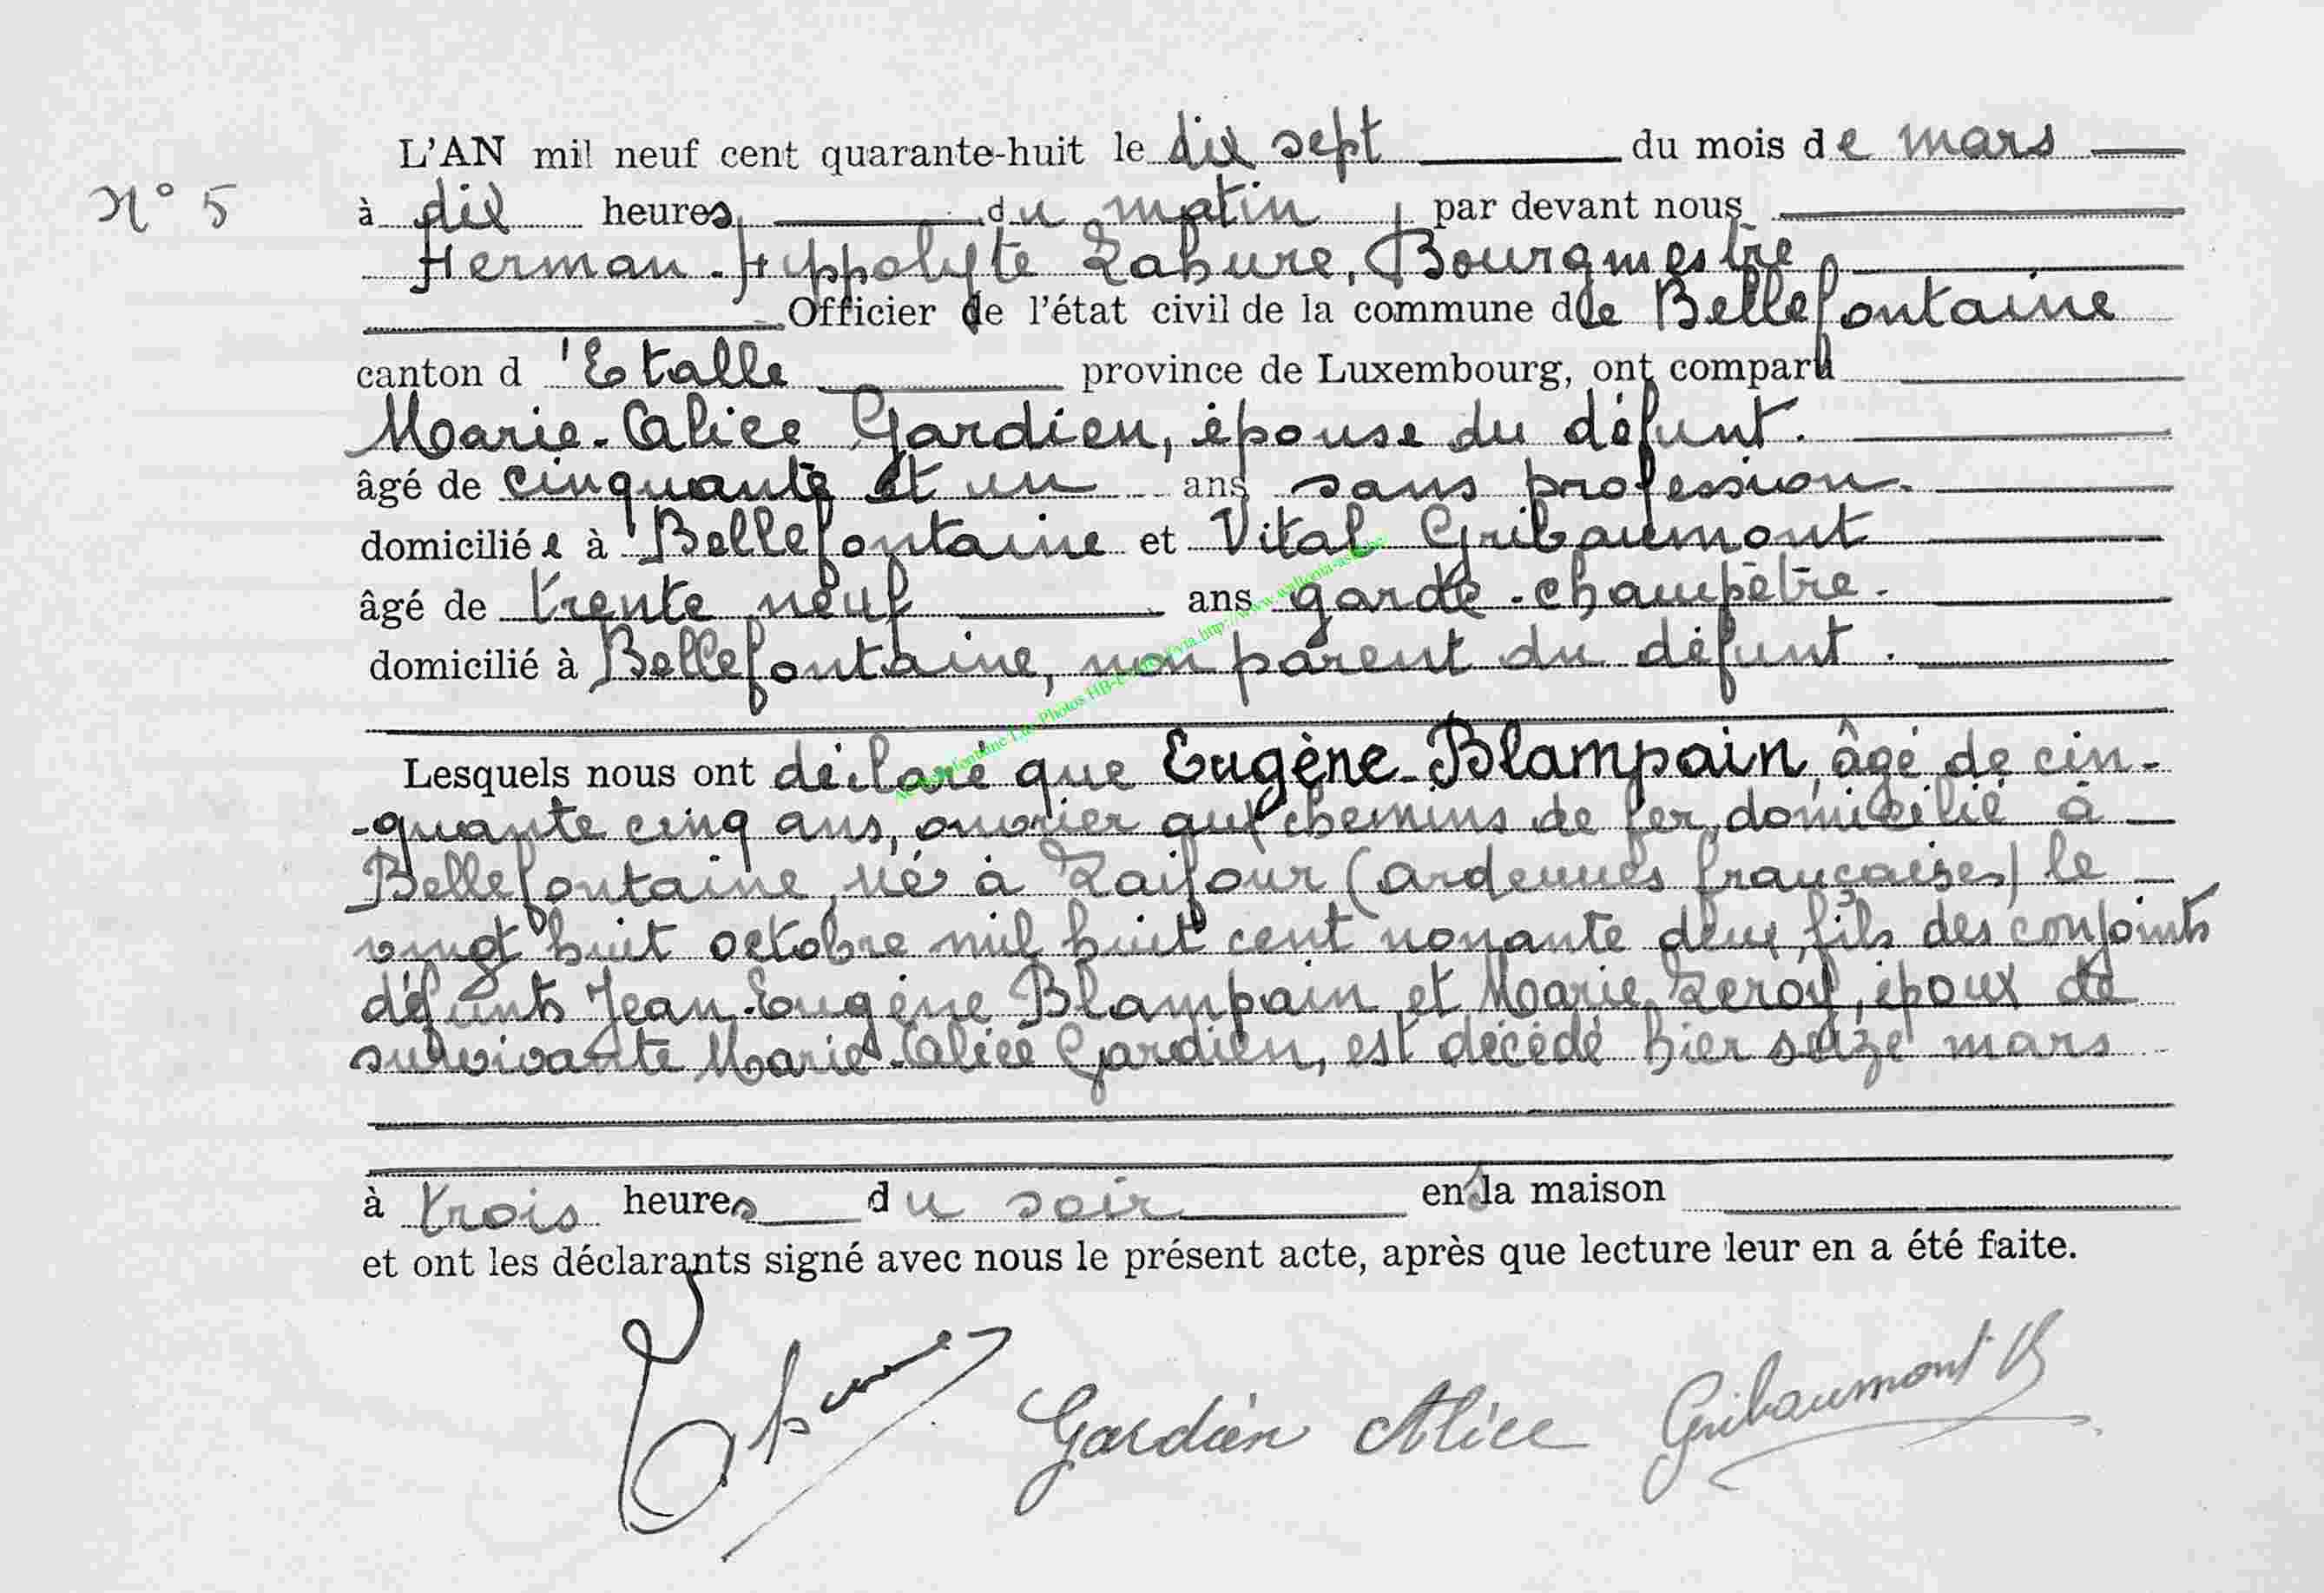 L'AN mil neuf cent quarante-huit le dix sept du mois de mars
N° 5
à dix heures du matin par devant nous
Herman-Hippolyte Lahure, Bourgmestre
Officier de l'état civil de la commune de Bellefontaine
canton d'Etalle province de Luxembourg, ont comparu
Marie-Alice Gardien, épouse du défunt.
âgé de cinquante et un ans sans profession.
domiciliée à Bellefontaine et Vital Gribaumont
âgé de trente neuf ans garde-champêtre.
domicilié à Bellefontaine, non parent du défunt.
Lesquels nous ont déclaré que Eugène-Blampain, âgé de cin-
-quante cinq ans, ouvrier aux chemins de fer, domicilié à
Bellefontaine, né à Laifour (Ardennes françaises) le
vingt huit octobre mil huit cent nonante deux, fils des conjoints
défunts Jean-Eugène Blampain et Marie Leroy, époux de
survivante Marie-Alice Gardien, est décédé hier seize mars
à trois heures du soir en sa maison
et ont les déclarants signé avec nous le présent acte, après que lecture leur en a été faite.
Gardien Alice Gribaumont V